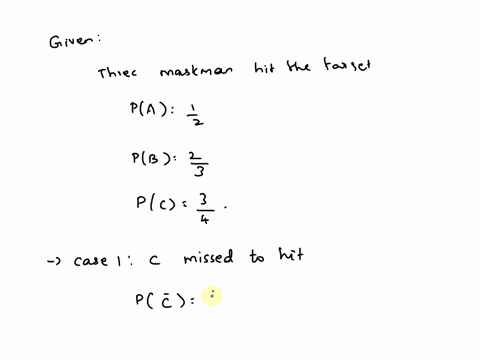 Given:
Three maskman hit the target
P(A): 1/2
P(B): 2/3
P(C) = 3/4.
-> case 1: C missed to hit
P(C̄):